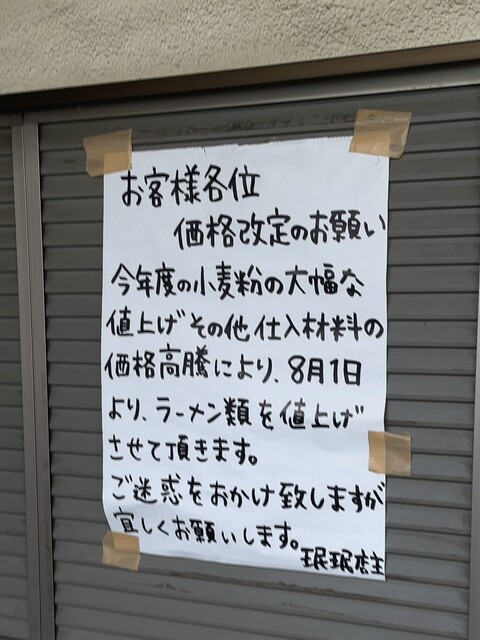 お客様各位
価格改定のお願い
今年度の小麦粉の大幅な
値上げその他仕入材料の
価格高騰により、8月1日
より、ラーメン類を値上げ
させて頂きます。
ご迷惑をおかけ致しますが
宜しくお願いします。
珉珉店主